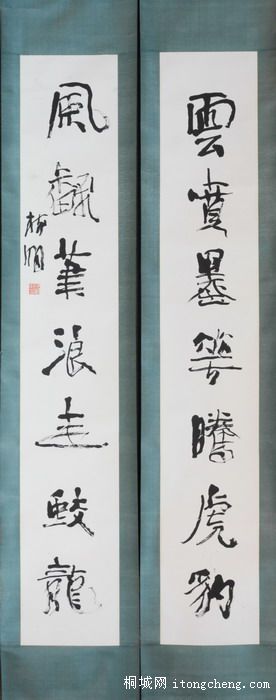 雲噴墨騰虎豹
風翻筆浪走鮫龍
林鵬
桐城网 itongcheng.com